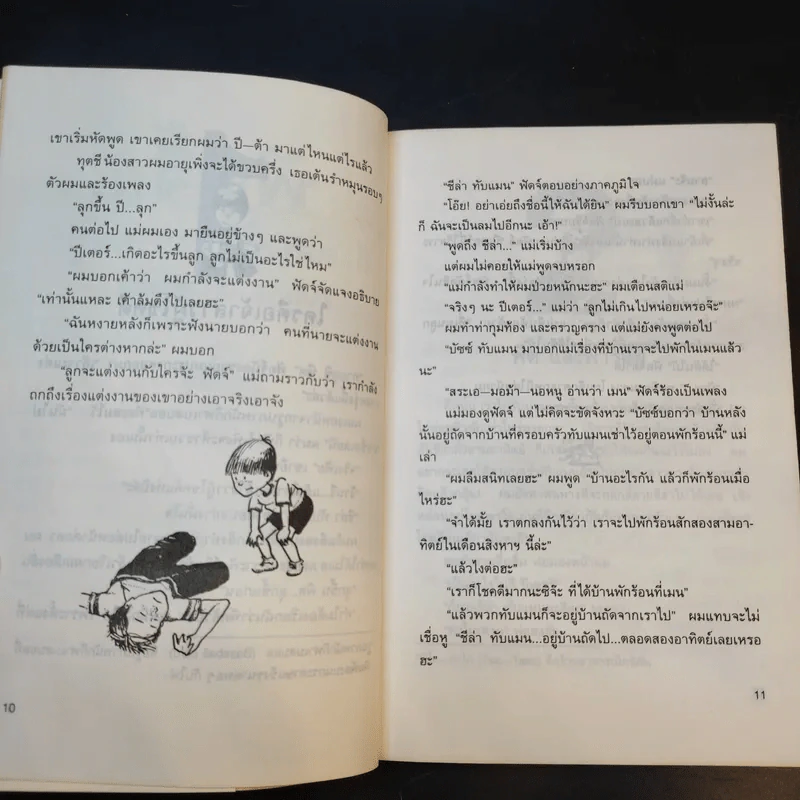 เขาเริ่มหัดพูด เขาเคยเรียกผมว่า ปี—ต้า มาแต่ไหนแต่ไรแล้ว
ทุตซี น้องสาวผมอายุเพิ่งจะได้ขวบครึ่ง เธอเต้นรำหมุนรอบๆ
ตัวผมและร้องเพลง
“ลุกขึ้น ปี...ลุก”
คนต่อไป แม่ผมเอง มายืนอยู่ข้างๆ และพูดว่า
“ปีเตอร์...เกิดอะไรขึ้นลูก ลูกไม่เป็นอะไรใช่ไหม”
“ผมบอกเค้าว่า ผมกำลังจะแต่งงาน” ฟัดจ์จัดแจงอธิบาย
“เท่านั้นแหละ เค้าล้มตึงไปเลยฮะ”
“ฉันหงายหลังก็เพราะฟังนายบอกว่า คนที่นายจะแต่งงาน
ด้วยเป็นใครต่างหากล่ะ” ผมบอก
“ลูกจะแต่งงานกับใครจ๊ะ ฟัดจ์” แม่ถามราวกับว่า เรากำลัง
ถกถึงเรื่องแต่งงานของเขาอย่างเอาจริงเอาจัง
10
“ชีล่า ทับแมน” ฟัดจ์ตอบอย่างภาคภูมิใจ
“โอ๊ย! อย่าเอ่ยถึงชื่อนี้ให้ฉันได้ยิน” ผมรีบบอกเขา “ไม่งั้นล่ะ
ก็ ฉันจะเป็นลมไปอีกนะ เอ้า!”
“พูดถึง ชีล่า...” แม่เริ่มบ้าง
แต่ผมไม่คอยให้แม่พูดจบหรอก
“แม่กำลังทำให้ผมป่วยหนักนะฮะ” ผมเตือนสติแม่
“จริงๆ นะ ปีเตอร์...” แม่ว่า “ลูกไม่เกินไปหน่อยเหรอจ๊ะ”
ผมทำท่ากุมท้อง และครวญคราง แต่แม่ยังคงพูดต่อไป
“บัซซ์ ทับแมน มาบอกแม่เรื่องที่บ้านเราจะไปพักในเมนแล้ว
นะ”
“สระเอ—มอม้า—นอหนู อ่านว่า เมน” ฟัดจ์ร้องเป็นเพลง
แม่มองดูฟัดจ์ แต่ไม่คิดจะขัดจังหวะ “บัซซ์บอกว่า บ้านหลัง
นั้นอยู่ถัดจากบ้านที่ครอบครัวทับแมนเช่าไว้อยู่ตอนพักร้อนนี้” แม่
เล่า
“ผมลืมสนิทเลยฮะ” ผมพูด “บ้านอะไรกัน แล้วก็พักร้อนเมื่อ
ไหร่ฮะ”
“จำได้มั้ย เราตกลงกันไว้ว่า เราจะไปพักร้อนสักสองสามอา-
ทิตย์ในเดือนสิงหาฯ นี้ล่ะ”
“แล้วไงต่อฮะ”
“เราก็โชคดีมากนะซิจ๊ะ ที่ได้บ้านพักร้อนที่เมน”
“แล้วพวกทับแมนก็จะอยู่บ้านถัดจากเราไป” ผมแทบจะไม่
เชื่อหู “ชีล่า ทับแมน...อยู่บ้านถัดไป...ตลอดสองอาทิตย์เลยเหรอ
ฮะ”
11